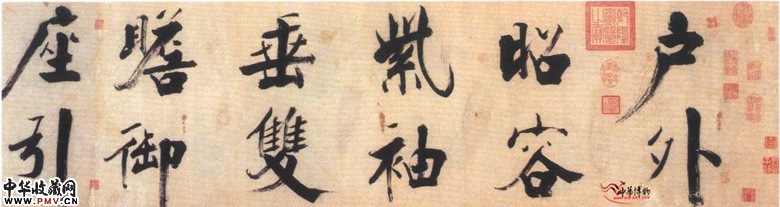 户外
昭容
紫袖
垂雙
瞻御
座引
中华收藏网
www.PMV.CN
中华博物